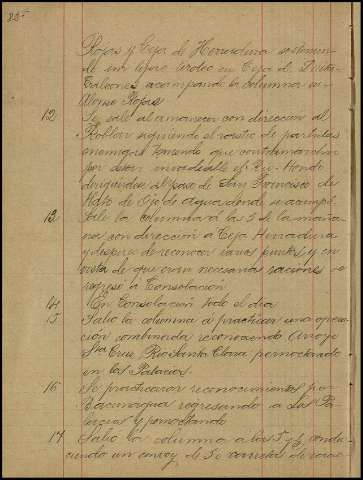 Rojas y Ceja de Herradura sostenien-
do un ligero tiroteo en Ceja de
acompañó la columna
Alonso Rojas
12 Se sale al amanecer con dirección al
Roblar siguiendo el rastro de partidas
enemigas teniendo que contramarchar
por estar invadeable el Rio-Hondo
dirigiendose al paso de San Francisco de
Hato de Ojo de agua donde se acampó.
13 Sale la columna á las 5 de la maña-
na con dirección a Ceja Herradura
y despues de reconocer varios puntos y en
vista de que eran necesarias raciones se
regresó a Consolación
14 En Consolación todo el dia
15 Salio la columna á practicar una opera-
ción combinada reconociendo Arroyo
Sta Cruz, Rio Santa Clara pernoctando
en los Palacios.
16 Se practicaron reconocimientos por
Bacunagua regresando a Los Pa-
lacios y pernoctando
17 Salio la columna a las 5 y ½ condu-
ciendo un convoy de 50 carretas de racio-